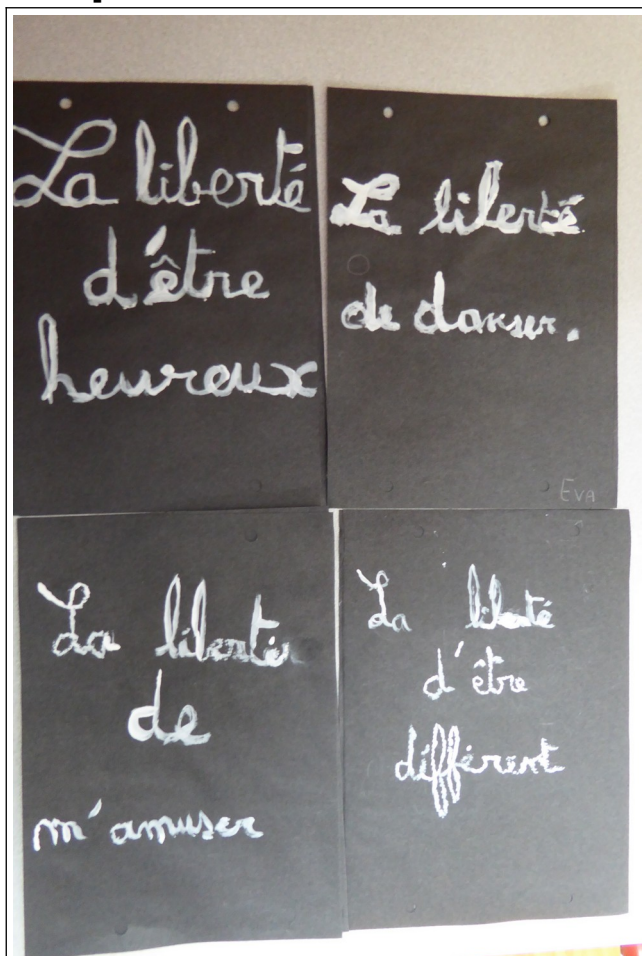 La liberté
d'être
heureux
La liberté
de danser.
EVA
La liberté
de
m'amuser
La liberté
d'être
différent